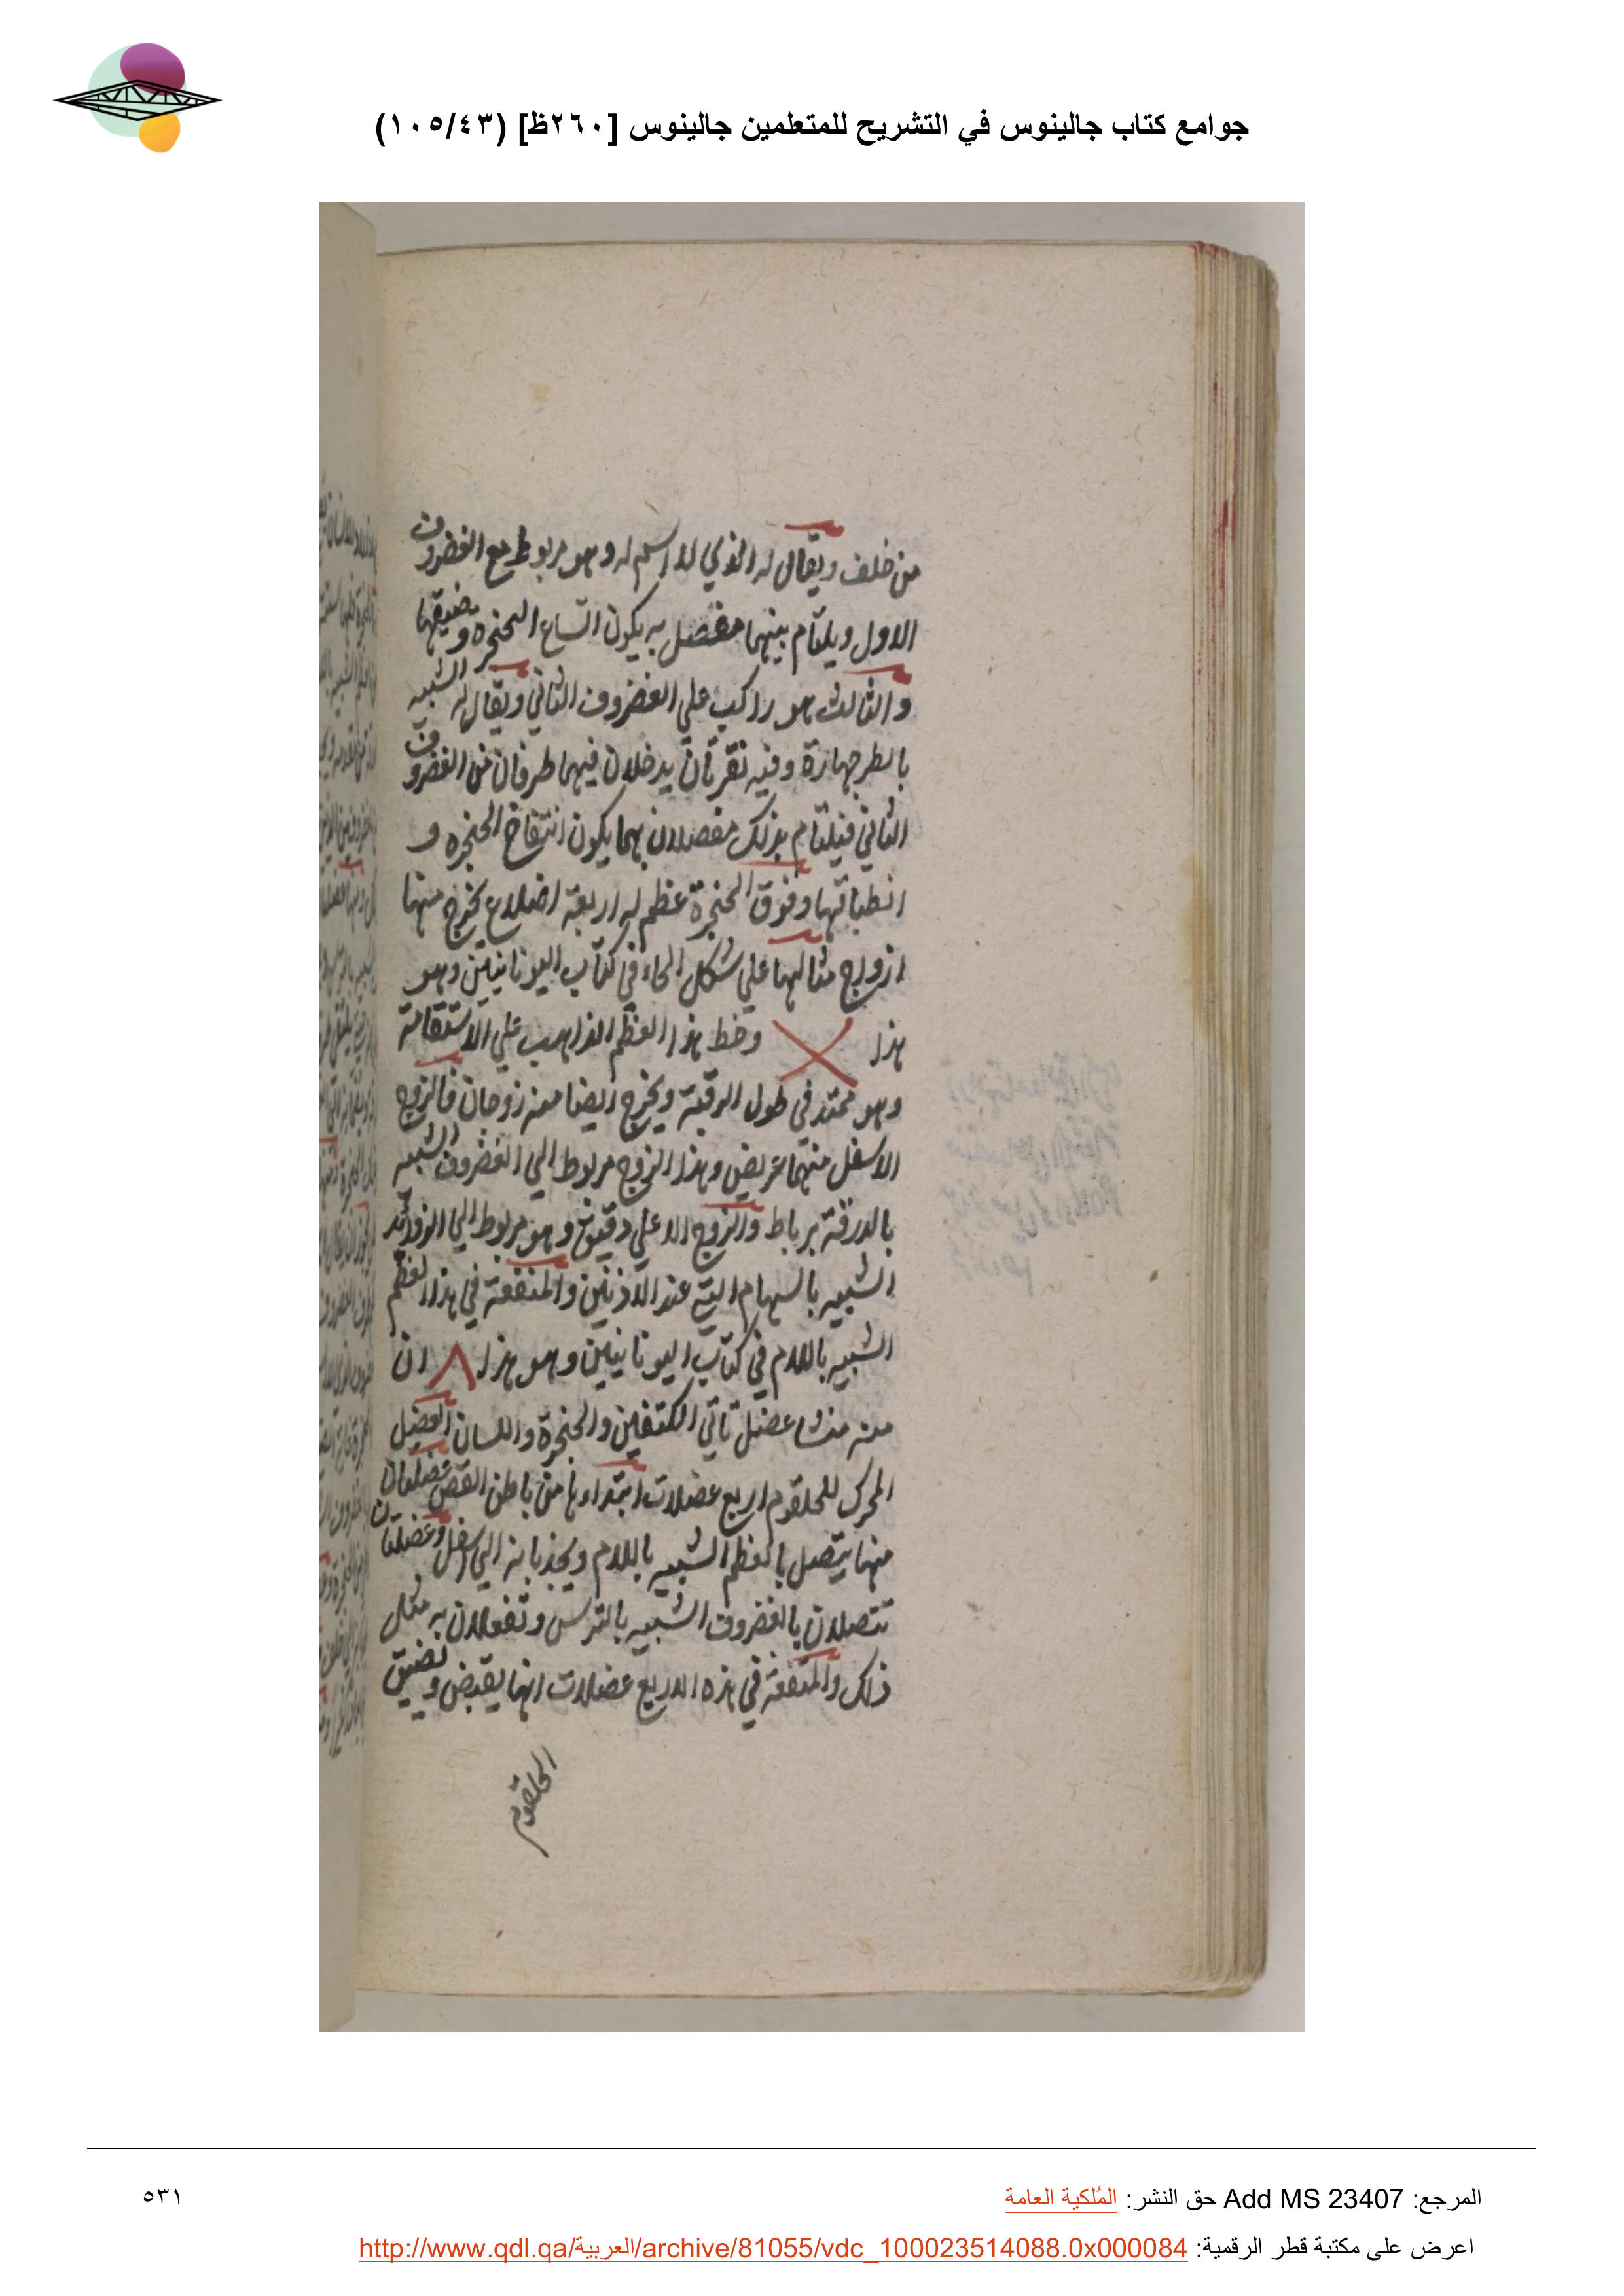 جوامع كتاب جالينوس في التشريح للمتعلمين جالينوس [٢٦٠ظ] (١٠٥/٤٣)
من خلف ويقال له الذي لا اسم له وهو مربوط مع الغضروف
الاول ويلتام بينهما مفصل به يكون اتساع الحنجره وضيقها
والثالث هو راكب علي الغضروف الثاني ويقال له الشبيه
بالطرجهارة وفيه نقرتان يدخلان فيهما طرفان من الغضروف
الثاني فيلتام بذلك مفصلان بهما يكون انتفاخ الحنجره و
انطباقها وفوق الحنجرة عظم له اربعة اضلاع يخرج منها
ازواج مثالها علي شكل الحاء في كتاب اليونانيين وهو
هذا X وخط هذا العظم الذاهب علي الاستقامة
وهو ممتد في طول الرقبة ويخرج ايضا منه زوجان فالزوج
الاسفل منهما عريض وهذا الزوج مربوط الي الغضروف الشبيه
بالدرقة برباط والزوج الاعلي دقيق وهو مربوط الي الزوائد
الشبيه بالسهام التي عند الاذنين والمنفعة في هذا العظم
الشبيه باللام في كتاب اليونانيين وهو هذا Λ ان
منه منشا عضل تاتي الكتفين والحنجرة واللسان العضل
المحرك للحلقوم اربع عضلات ابتداءها من باطن القص عضلتان
منها يتصل بالعظم الشبيه باللام ويجذبانه الي اسفل وعضلتان
تتصلان بالغضروف الشبيه بالترس وتفعلان به مثل
ذلك والمنفعة في هذه الاربع عضلات انها يقبض ويضيق
الحلقوم
المرجع: Add MS 23407 حق النشر: المُلكية العامة
٥٣١
اعرض على مكتبة قطر الرقمية: http://www.qdl.qa/العربية/archive/81055/vdc_100023514088.0x000084